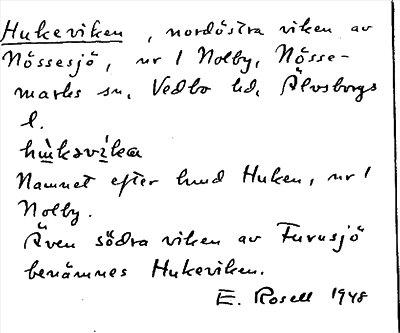 Hukeviken, nordöstra viken av
Nössesjö, nr 1 Nolby, Nösse-
marks sn, Vedbo hd, Älvsborgs
l.
Namnet efter hund Huken, nr 1
Nolby.
Även södra viken av Furusjö
benämnes Hukeviken.
E. Rosell 1948